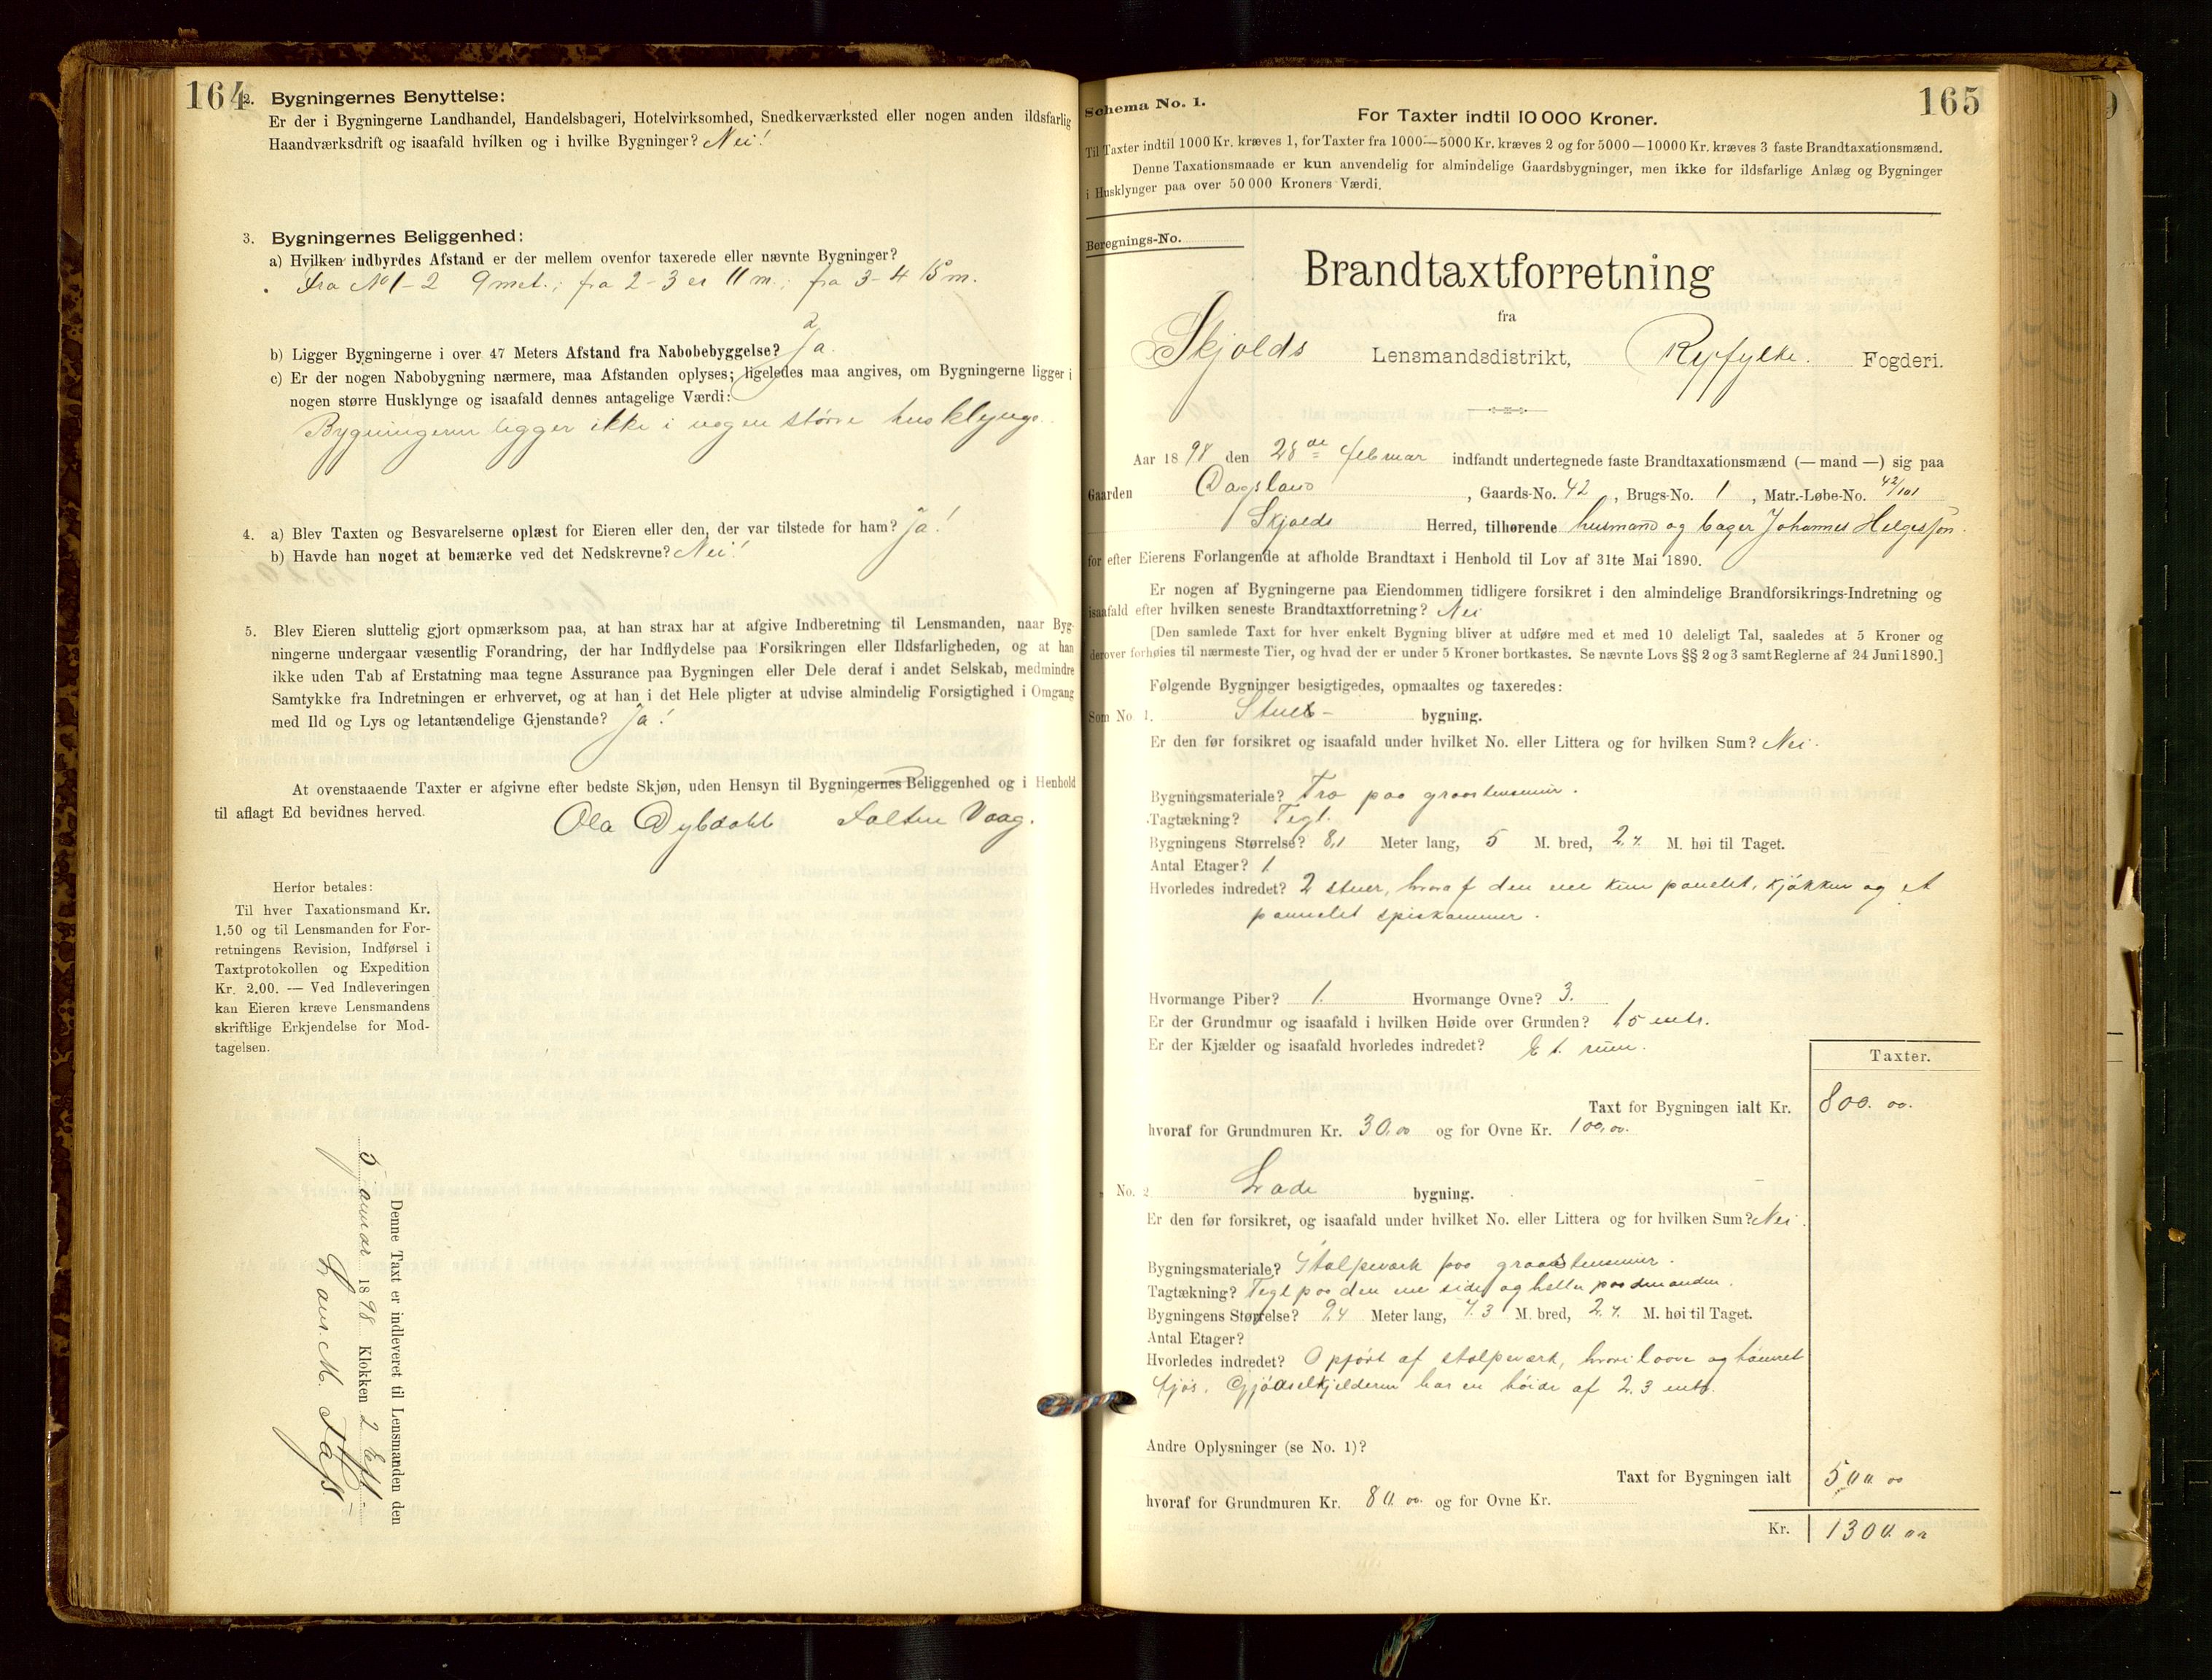 164
2. Bygningernes Benyttelse:
Er der i Bygningerne Landhandel, Handelsbageri, Hotelvirksomhed, Snedkerværksted eller nogen anden ildsfarlig
Haandværksdrift og isaafald hvilken og i hvilke Bygninger? Nei!
3. Bygningernes Beliggenhed:
a) Hvilken indbyrdes Afstand er der mellem ovenfor taxerede eller nævnte Bygninger?
Fra No 1-2 9 met.; fra 2-3 er 11 m.; fra 3-4 15 m.
b) Ligger Bygningerne i over 47 Meters Afstand fra Nabobebyggelse? Ja
c) Er der nogen Nabobygning nærmere, maa Afstanden oplyses; ligeledes maa angives, om Bygningerne ligger i
nogen større Husklynge og isaafald dennes antagelige Værdi:
Bygningerne ligger ikke i nogen større husklynge.
4. a) Blev Taxten og Besvarelserne oplæst for Eieren eller den, der var tilstede for ham? Ja!
b) Havde han noget at bemærke ved det Nedskrevne? Nei!
5. Blev Eieren sluttelig gjort opmærksom paa, at han strax har at afgive Indberetning til Lensmanden, naar Byg-
ningerne undergaar væsentlig Forandring, der har Indflydelse paa Forsikringen eller Ildsfarligheden, og at han
ikke uden Tab af Erstatning maa tegne Assurance paa Bygningen eller Dele deraf i andet Selskab, medmindre
Samtykke fra Indretningen er erhvervet, og at han i det Hele pligter at udvise almindelig Forsigtighed i Omgang
med Ild og Lys og letantændelige Gjenstande? Ja!
At ovenstaaende Taxter er afgivne efter bedste Skjøn, uden Hensyn til Bygningernes Beliggenhed og i Henhold
til aflagt Ed bevidnes herved.
Ola Dybdahl Falten Vaag.
Herfor betales:
Til hver Taxationsmand Kr.
1.50 og til Lensmanden for For-
retningens Revision, Indførsel i
Taxtprotokollen og Expedition
Kr. 2.00. — Ved Indleveringen
kan Eieren kræve Lensmandens
skriftlige Erkjendelse for Mod-
tagelsen.
Denne Taxt er indleveret til Lensmanden den
5 januar 1898 Klokken 2 Eft.
165
Schema No. 1.
For Taxter indtil 10 000 Kroner.
Til Taxter indtil 1000 Kr. kræves 1, for Taxter fra 1000—5000 Kr. kræves 2 og for 5000—10000 Kr. kræves 3 faste Brandtaxationsmænd.
Denne Taxationsmaade er kun anvendelig for almindelige Gaardsbygninger, men ikke for ildsfarlige Anlæg og Bygninger
i Husklynger paa over 50 000 Kroners Værdi.
Beregnings-No.
Brandtaxtforretning
fra
Skjolds Lensmandsdistrikt, Ryfylke. Fogderi.
Aar 1898 den 28de februar indfandt undertegnede faste Brandtaxationsmænd (— mand —) sig paa
Gaarden Dagsland, Gaards-No. 42, Brugs-No. 1, Matr.-Løbe-No. 42/101
Skjolds Herred, tilhørende husmand og bager Johannes Helgesson
for efter Eierens Forlangende at afholde Brandtaxt i Henhold til Lov af 31te Mai 1890.
Er nogen af Bygningerne paa Eiendommen tidligere forsikret i den almindelige Brandforsikrings-Indretning og
isaafald efter hvilken seneste Brandtaxtforretning? Nei
[Den samlede Taxt for hver enkelt Bygning bliver at udføre med et med 10 deleligt Tal, saaledes at 5 Kroner og
derover forhøies til nærmeste Tier, og hvad der er under 5 Kroner bortkastes. Se nævnte Lovs §§ 2 og 3 samt Reglerne af 24 Juni 1890.]
Følgende Bygninger besigtigedes, opmaaltes og taxeredes:
Som No. 1. Stue- bygning.
Er den før forsikret og isaafald under hvilket No. eller Littera og for hvilken Sum? Nei.
Bygningsmateriale? Træ paa graastensmur.
Tagtækning? Tegl.
Bygningens Størrelse? 8,1 Meter lang, 5 M. bred, 2.7. M. høi til Taget.
Antal Etager? 1
Hvorledes indredet? 2 stuer, hvoraf den ene kun panelet, kjøkken og et
pannelet spiskammer.
Hvormange Piber? 1. Hvormange Ovne? 3.
Er der Grundmur og isaafald i hvilken Høide over Grunden? 1,5 mtr.
Er der Kjælder og isaafald hvorledes indredet? Et rum.
Taxter.
Taxt for Bygningen ialt Kr. 800. 00.
hvoraf for Grundmuren Kr. 30,00 og for Ovne Kr. 100,00.
" No. 2 Lade bygning.
Er den før forsikret, og isaafald under hvilket No. eller Littera og for hvilken Sum? Nei.
Bygningsmateriale? Stolpeværk paa graastensmur.
Tagtækning? Tegl paa den ene side og heller paa den anden.
Bygningens Størrelse? 9,4 Meter lang, 7.3 M. bred, 2.7. M. høi til Taget.
Antal Etager?
Hvorledes indredet? Opført af stolpeværk, hvori loove og tømret
fjøs. Gjødselkjelderen har en høide af 2.3 mtr.
Andre Oplysninger (se No. 1)?
Taxt for Bygningen ialt 500 00
hvoraf for Grundmuren Kr. 80. 00. og for Ovne Kr.
Kr. 1300. 00